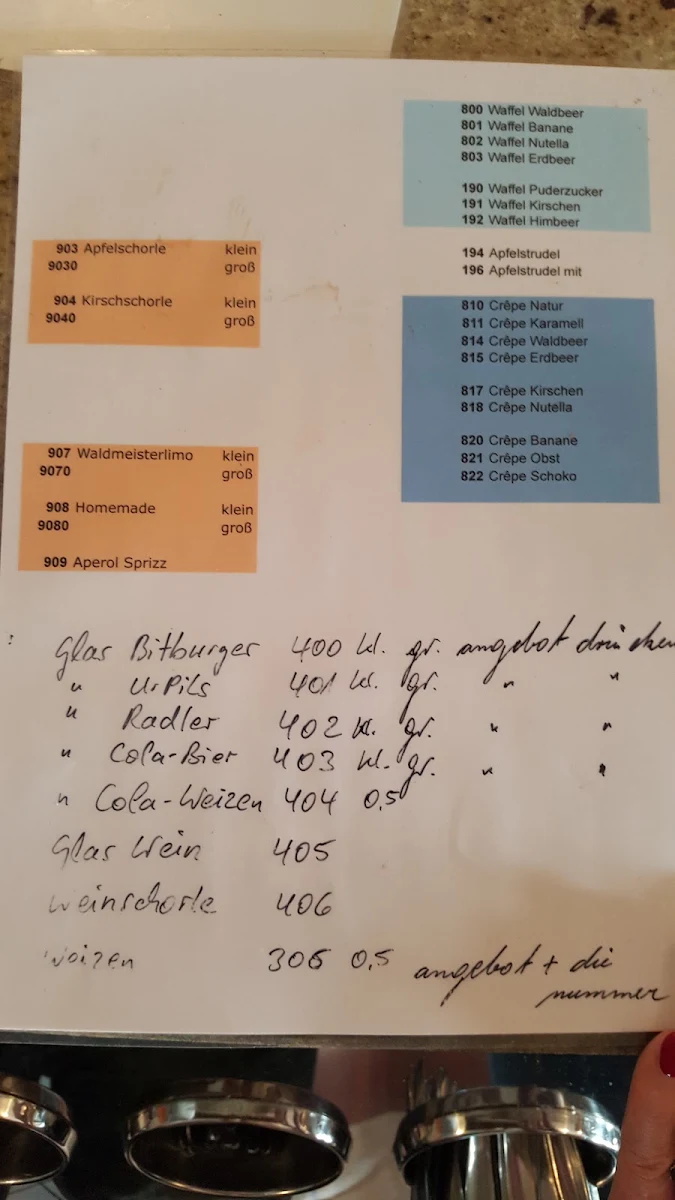 903 Apfelschorle klein
9030 groß
904 Kirschschorle klein
9040 groß
907 Waldmeisterlimo klein
9070 groß
908 Homemade klein
9080 groß
909 Aperol Sprizz
800 Waffel Waldbeer
801 Waffel Banane
802 Waffel Nutella
803 Waffel Erdbeer
190 Waffel Puderzucker
191 Waffel Kirschen
192 Waffel Himbeer
194 Apfelstrudel
196 Apfelstrudel mit
810 Crêpe Natur
811 Crêpe Karamell
814 Crêpe Waldbeer
815 Crêpe Erdbeer
817 Crêpe Kirschen
818 Crêpe Nutella
820 Crêpe Banane
821 Crêpe Obst
822 Crêpe Schoko
Glas Bitburger 400 kl. gr. angebot drücken
" UrPils 401 kl. gr. " "
" Radler 402 kl. gr. " "
" Cola-Bier 403 kl. gr. " "
" Cola-Weizen 404 0,5
Glas Wein 405
weinschorle 406
weizen 306 0,5 angebot + die
nummer